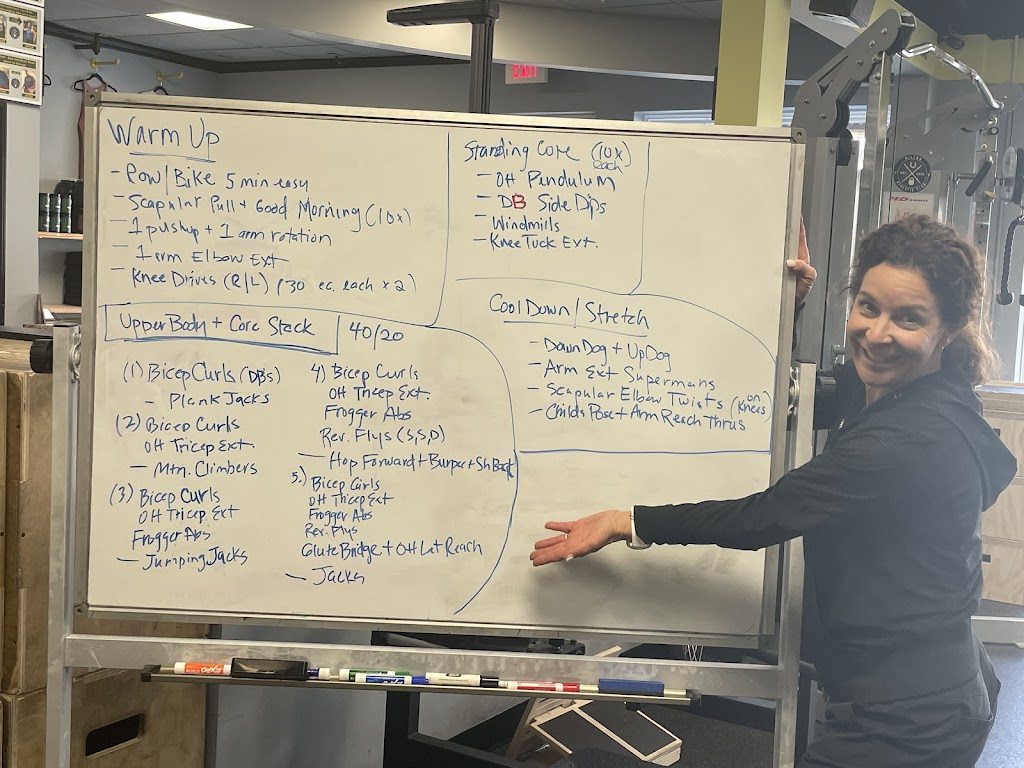 Warm Up
- Row/Bike 5 min easy
- Scapular Pull + Good Morning (10x)
- 1 pushup + 1 arm rotation
- 1 arm Elbow Ext
- Knee Drives (R/L) (30 ec. each x 2)
Upper Body + Core Stack
40/20
(1) Bicep Curls (DBs)
- Plank Jacks
(2) Bicep Curls
OH Tricep Ext.
- Mtn. Climbers
(3) Bicep Curls
OH Tricep Ext
Frogger Abs
- Jumping Jacks
4) Bicep Curls
OH Tricep Ext.
Frogger Abs
Rev. Flys (S,S,D)
- Hop Forward + Burpee + Sh Back
5.) Bicep Curls
OH Tricep Ext
Frogger Abs
Rev. Flys
Glute Bridge + OH Lat Reach
- Jacks
Standing Core (10x)
each
- OH Pendulum
- DB Side Dips
- Windmills
- Knee Tuck Ext.
Cool Down / Stretch
- Down Dog + Up Dog
- Arm Ext Supermans
- Scapular Elbow Twists (on Knees)
- Childs Pose + Arm Reach Thrus
EXIT
EXPO